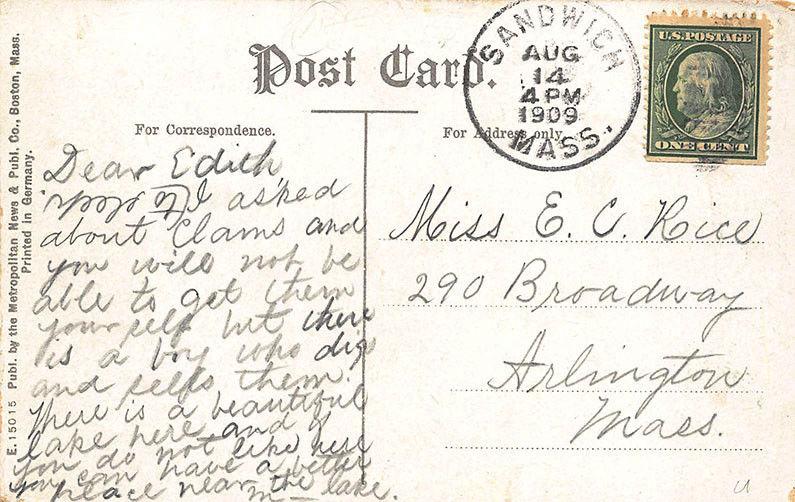 E. 15015 Publ. by the Metropolitan News & Publ. Co., Boston, Mass.
Printed in Germany.
Post Card.
SANDWICH
AUG
14
4 PM
1909
MASS.
U.S. POSTAGE
ONE CENT
For Correspondence.
For Address only.
Dear Edith,
I asked
about Clams and
you will not be
able to get them
yourself but there
is a boy who digs
and sells them.
There is a beautiful
lake here and if
you do not like here
you can have a better
place near the lake.
M
Miss E. C. Rice
290 Broadway
Arlington
Mass.